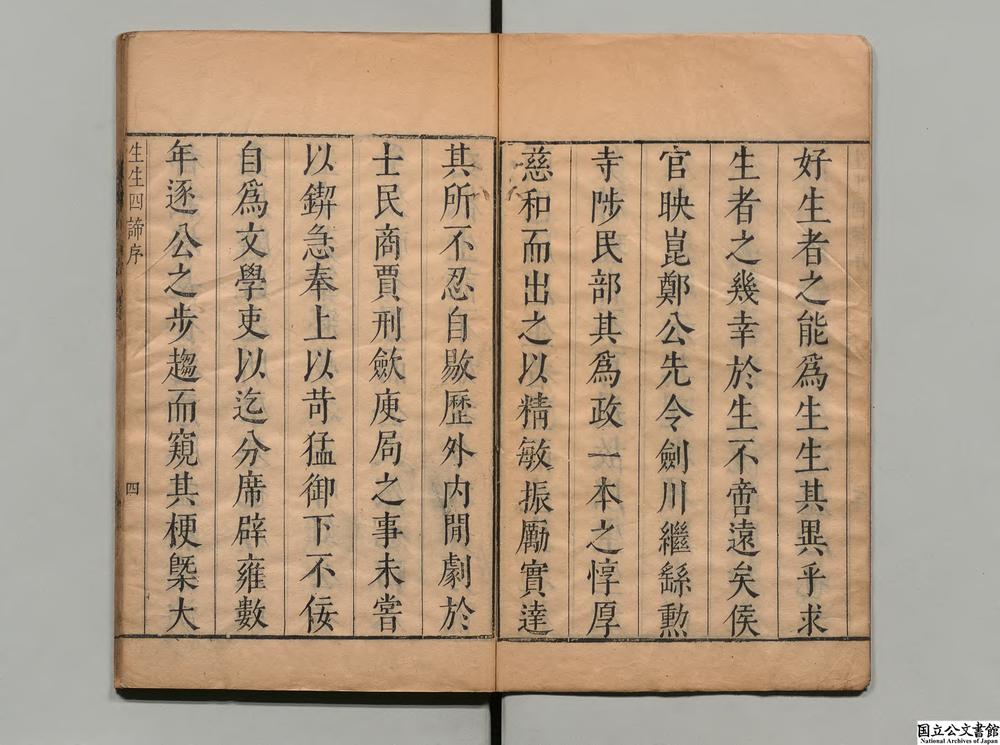 好生者之能爲生生其異乎求
生者之幾幸於生不啻遠矣侯
官映崑鄭公先令劍川繼繇勲
寺陟民部其爲政一本之惇厚
慈和而出之以精敏振勵實達
其所不忍自敭歷外内閒劇於
士民商賈刑歛庾局之事未嘗
以鍥急奉上以苛猛御下不佞
自爲文學吏以迄分席辟雍數
年逐公之步趨而窺其梗槩大
生生四諦序
四
国立公文書館
National Archives of Japan